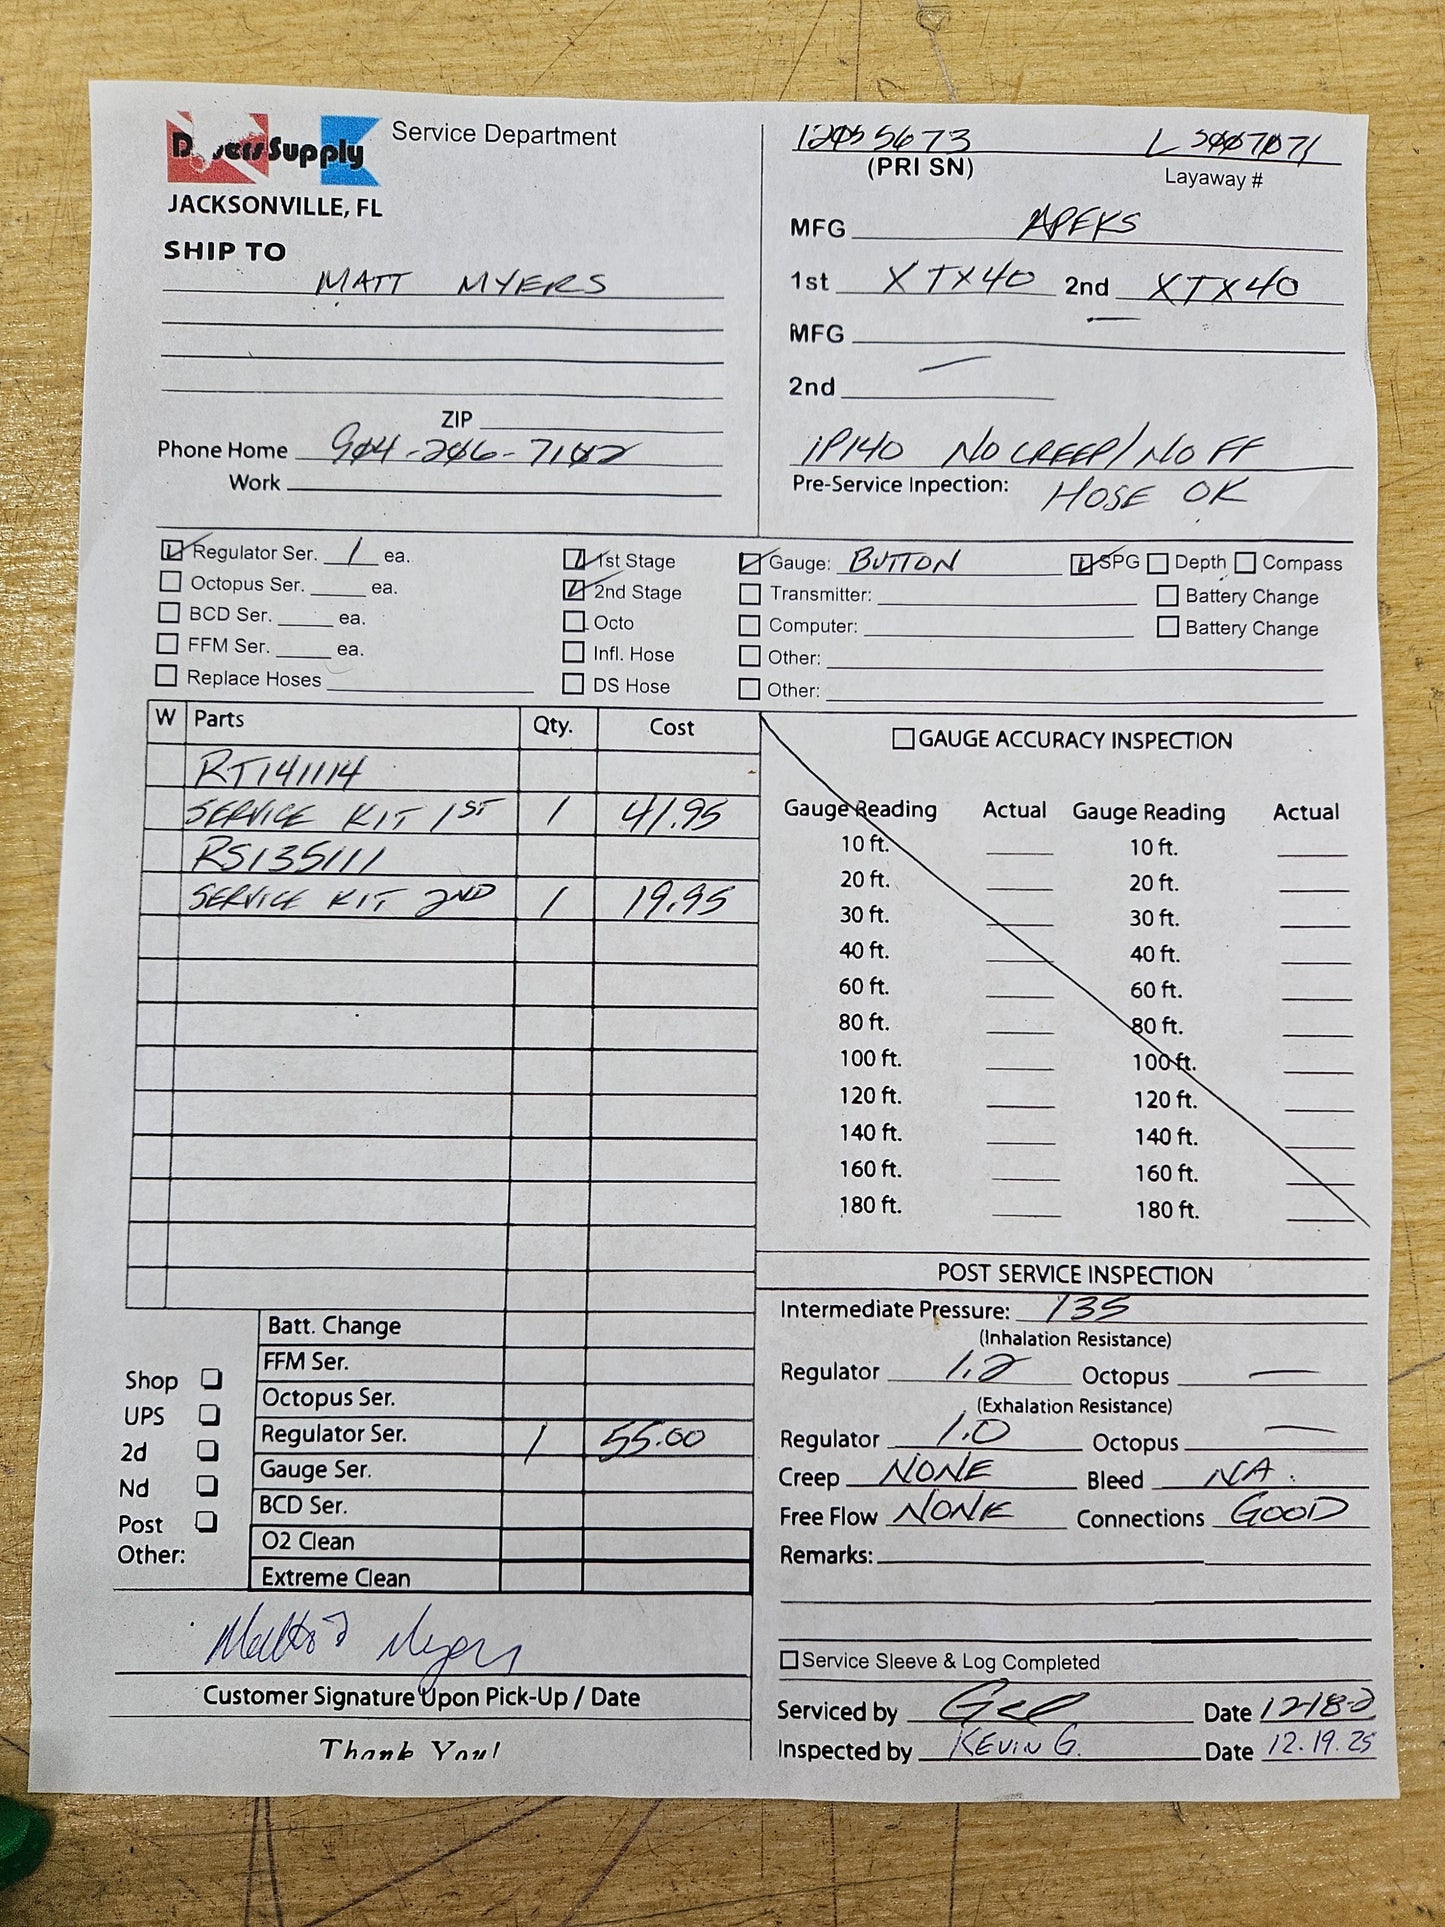 Divers Supply Service Department
JACKSONVILLE, FL
SHIP TO
MATT MYERS
ZIP
Phone Home 904-206-7102
Work
12055673 L5007071
(PRI SN) Layaway #
MFG APEKS
1st XTX40 2nd XTX40
MFG
2nd —
IP140 NO CREEP/NO FF
Pre-Service Inpection: HOSE OK
Regulator Ser. 1 ea.
Octopus Ser. ea.
BCD Ser. ea.
FFM Ser. ea.
Replace Hoses
1st Stage
2nd Stage
Octo
Infl. Hose
DS Hose
Gauge: BUTTON SPG Depth Compass
Transmitter: Battery Change
Computer: Battery Change
Other:
Other:
W Parts Qty. Cost
RT141114
SERVICE KIT 1ST 1 41.95
RS135111
SERVICE KIT 2ND 1 19.95
Batt. Change
FFM Ser.
Octopus Ser.
Regulator Ser. 1 55.00
Gauge Ser.
BCD Ser.
O2 Clean
Extreme Clean
Shop
UPS
2d
Nd
Post
Other:
Customer Signature Upon Pick-Up / Date
Thank You!
GAUGE ACCURACY INSPECTION
Gauge Reading Actual Gauge Reading Actual
10 ft. 10 ft.
20 ft. 20 ft.
30 ft. 30 ft.
40 ft. 40 ft.
60 ft. 60 ft.
80 ft. 80 ft.
100 ft. 100 ft.
120 ft. 120 ft.
140 ft. 140 ft.
160 ft. 160 ft.
180 ft. 180 ft.
POST SERVICE INSPECTION
Intermediate Pressure: 135
(Inhalation Resistance)
Regulator 1.2 Octopus —
(Exhalation Resistance)
Regulator 1.0 Octopus —
Creep NONE Bleed NA.
Free Flow NONE Connections GOOD
Remarks:
Service Sleeve & Log Completed
Serviced by Date 12-18-2
Inspected by KEVIN G. Date 12.19.25